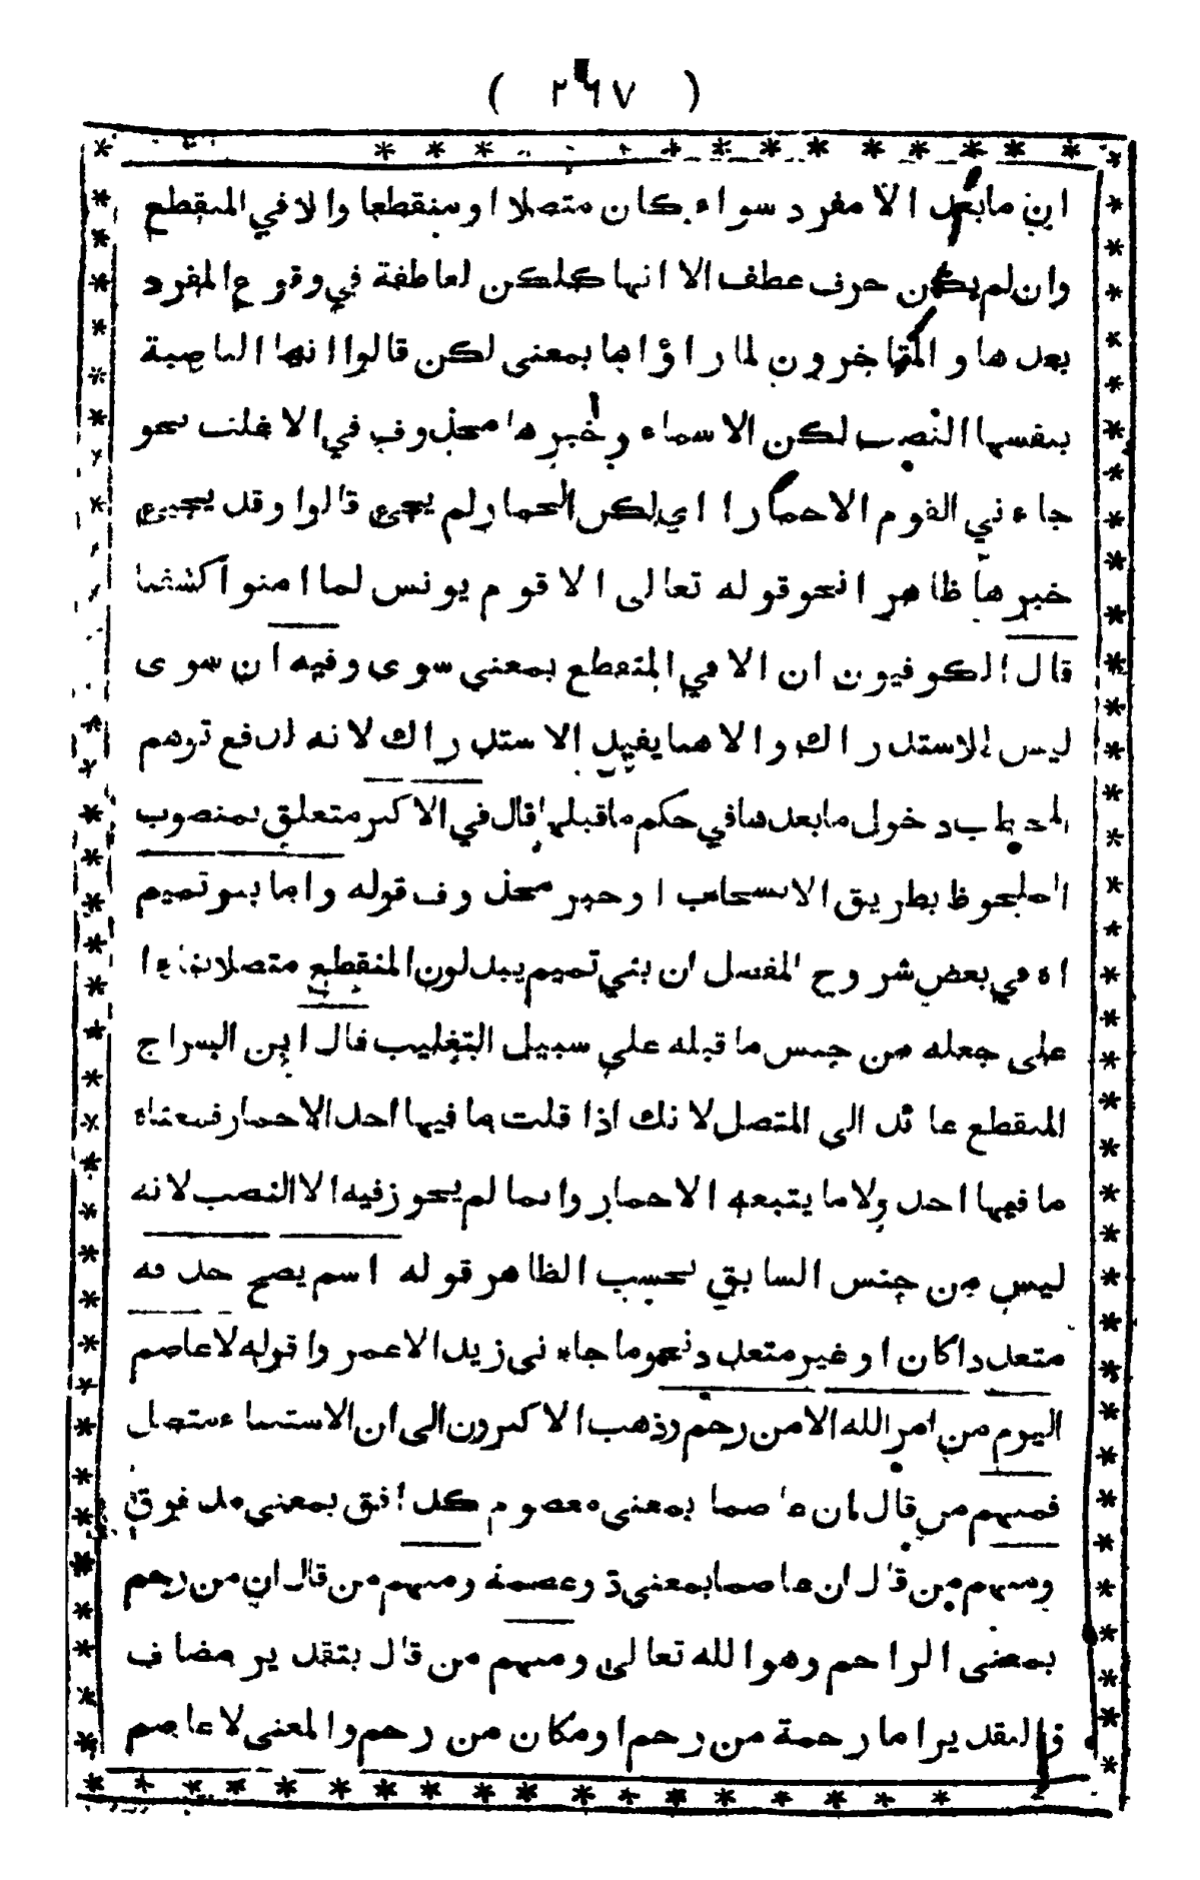 ( ٢٦٧ )
ان مابعد الا مفرد سواء كان متصلا او منقطعا والا في المنقطع
وان لم يكن حرف عطف الا انها كلكن لعاطفة في وقوع المفرد
بعد ها و المتاخرون لما راؤاها بمعنى لكن قالوا انها الناصبة
بنفسها النصب لكن الاسماء وخبر ها محذوف في الاغلب نحو
جاء ني القوم الاحمارا اي لكن الحمار لم يجئ قالوا وقد يجيئ
خبرها ظاهرا نحو قوله تعالى الا قوم يونس لما امنوا كشفنا
قال الكوفيون ان الا في المنقطع بمعنى سوى وفيه ان سوى
ليس للاستدراك والا هما يفيد الاستدراك لانه لدفع توهم
المخاطب دخول مابعدها في حكم ماقبلها قال في الاكبر متعلق بمنصوب
الملحوظ بطريق الانسحاب او خبر محذوف قوله واما بنو تميم
اه في بعض شروح المفصل ان بني تميم يبدلون المنقطع متصلا بناءا
على جعله من جنس ما قبله على سبيل التغليب قال ابن السراج
المنقطع عائد الى المتصل لانك اذا قلت ما فيها احد الاحمار فمعناه
ما فيها احد ولا ما يتبعه الاحمار وانما لم يجوز فيه الا النصب لانه
ليس من جنس السابق بحسب الظاهر قوله اسم يصح حذفه
متعددا كان او غير متعدد نحو ما جاء نى زيد الاعمر وا قوله لاعاصم
اليوم من امر الله الا من رحم وذهب الاكثرون الى ان الاستثناء متصل
فمنهم من قال ان عاصما بمعنى معصوم كدافق بمعنى مدفوق
ومنهم من قال ان عاصما بمعنى ذو عصمة ومنهم من قال ان من رحم
بمعنى الراحم وهو الله تعالى ومنهم من قال بتقدير مضاف
والتقدير اما رحمة من رحم او مكان من رحم والمعنى لا عاصم